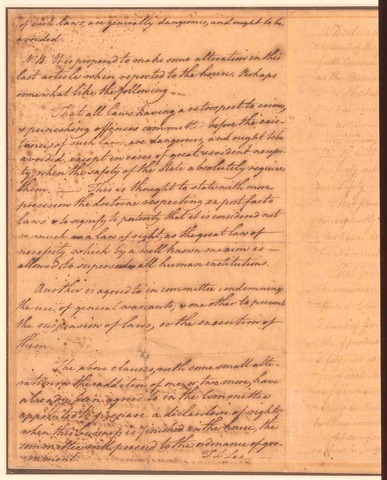 of such laws, are generally dangerous, and ought to be
avoided.
N.B. It is proposed to make some alteration in this
last article when reported to the house. Perhaps
somewhat like the following
That all laws having a retrospect to crimes,
& punishing offences committed before the exis-
tence of such laws, are dangerous, and ought to be
avoided, except in cases of great & evident necessi-
ty, when the safety of the state absolutely requires
them. This is thought to state with more
precision the doctrine respecting ex post facto
laws & to signify to posterity that it is considered not
so much as a law of right, as the great law of
necessity, which by a well known maxim is
allowed to supersede all human institutions.
Another is agreed to in committee condemning
the use of general warrants; & one other to prevent
the suspension of laws, or the execution of
them.
The above clauses, with some small alte-
rations, & the addition of one or two more, have
already been agreed to in the Committee
appointed to prepare a declaration of rights;
when this business is finished in the house, the
committee will proceed to the ordinance of gov-
ernment.
T. L. Lee